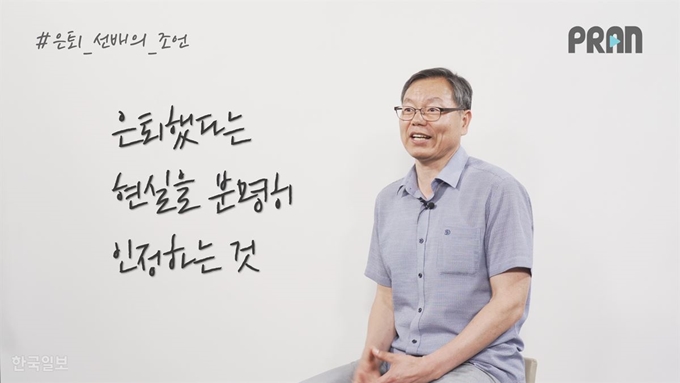 #은퇴_선배의_조언
PRAN
은퇴했다는
현실을 분명히
인정하는 것
한국일보